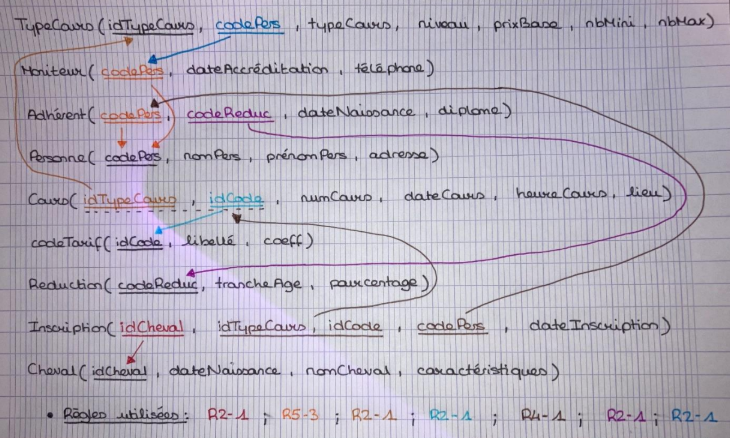 TypeCours (idTypeCours, codePers, typeCours, niveau, prixBase, nbMini, nbMax)
Moniteur( codePers, dateAccréditation, téléphone)
Adhérent( codePers, codeReduc, dateNaissance, diplome)
Personne( codePers, nomPers, prénomPers, adresse)
Cours( idTypeCours, idCode, numCours, dateCours, heureCours, lieu)
codeTarif( idCode, libellé, coeff)
Reduction( codeReduc, trancheAge, pourcentage)
Inscription( idCheval, idTypeCours, idCode, codePers, dateInscription)
Cheval( idCheval, dateNaissance, nomCheval, caractéristiques)
• Règles utilisées: R2-1 ; R5-3 ; R2-1 ; R2-1 ; R4-1 ; R2-1 ; R2-1